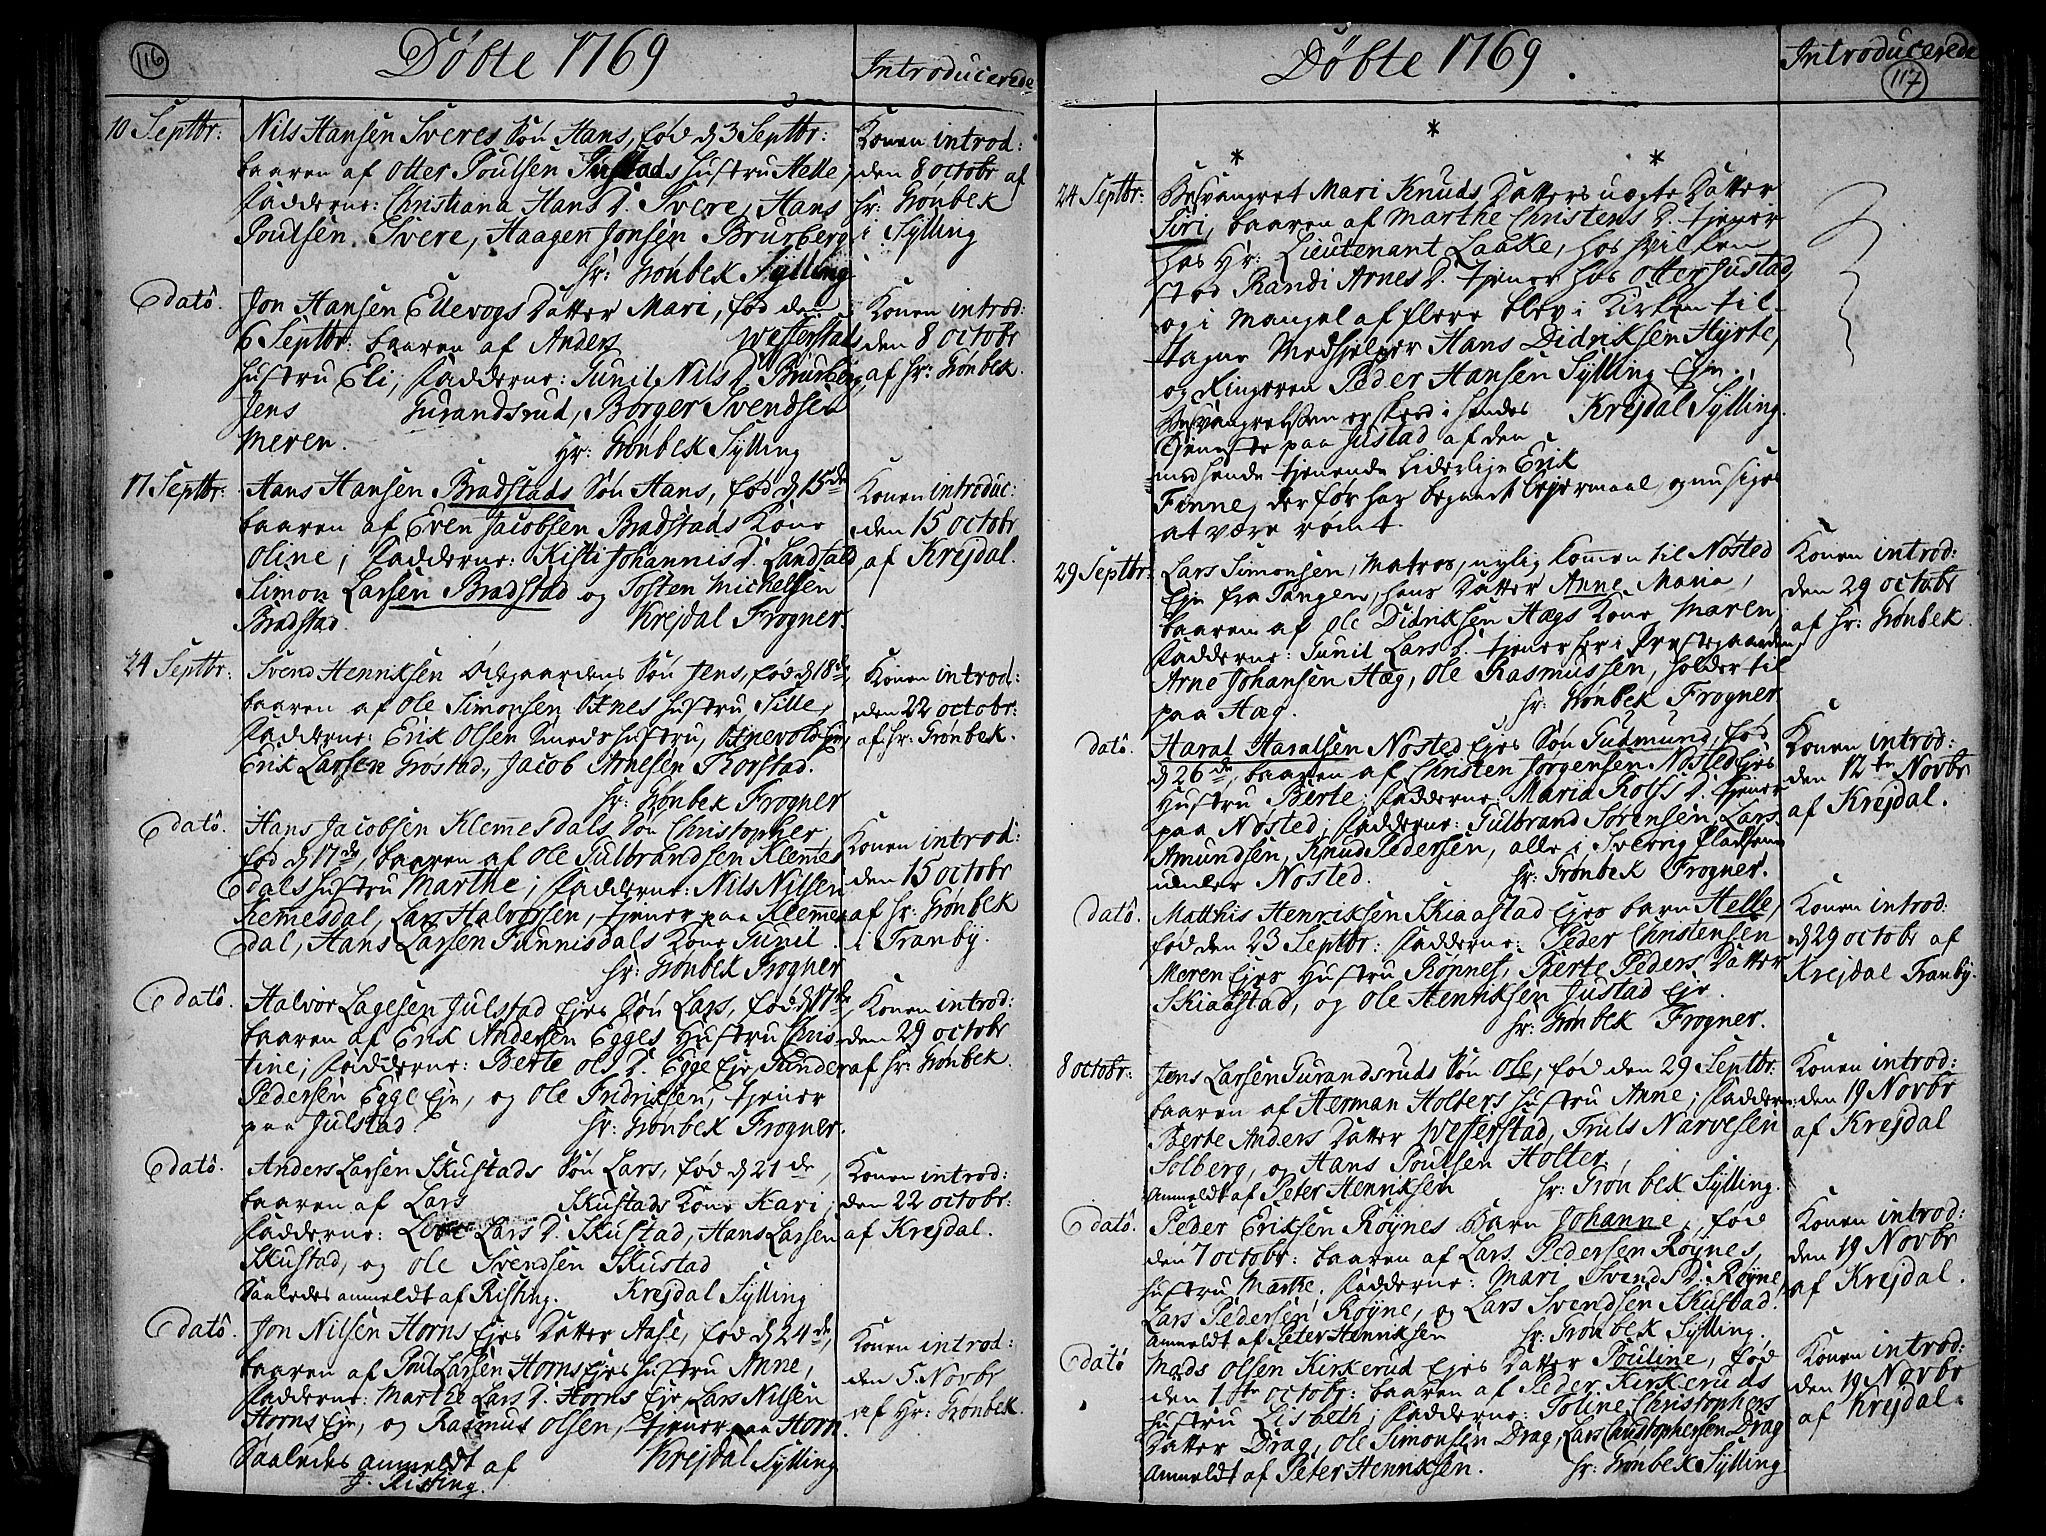 116
Döbte 1769
Introducerede
10 Septbr:
Nils Hansen Sveres Sön Hans, föd d 3 Septbr:
baaren af Otter Poulsen Justads Hustru Helle,
Fadderne: Christiana Hans D. Svere, Hans
Poulsen Svere, Haagen Jonsen Brurberg
Hr: Grönbek Sylling
Konen introd:
den 8 octobr af
Hr: Grönbek
i Sylling
Edatô.
Jon Hansen Ellevogs Datter Mari, föd den
6 Septbr: baaren af Anders Wefferstads
Hustru Eli; Fadderne: Gunil Nils D. Brurberg,
Jens Gurandsrud, Börger Svendsen
Meren.
Hr: Grönbek Sylling
Konen introd:
den 8 octobr
af Hr: Grönbek.
17 Septbr:
Hans Hansen Bradstads Sön Hans, föd d 15de
baaren af Even Jacobsen Bradstads Kone
Oline; Fadderne: Kisti Johannis D. Landfald
Simon Larsen Bradstad og Tosten Michelsen
Bradstad.
Krejdal Frogner.
Konen introduc:
den 15 octobr
af Krejdal.
24 Septbr:
Svend Henriksen Ödegaardens Sön Jens, föd d 18de,
baaren af Ole Simonsen Otnes Hustru Sille,
Fadderne: Erik Olsen Smeds Hustru, Otnevold Eje,
Erik Larsen Grostad, Jacob Arnesen Korstad.
Hr: Grönbek Frogner
Konen introd:
den 22 octobr:
af Hr: Grönbek.
Edatô.
Hans Jacobsen Klemesdals Sön Christopher
föd d 17de, baaren af Ole Gulbrandsen Klemes
dals Hustru Marthe; Fadderne: Nils Nilsen
Klemesdal, Lars Halvorsen, tjener paa Klemes
dal, Hans Larsen Funnisdals Kone Gunil.
Hr: Grönbek Frogner
Konen introd:
den 15 octobr
af Hr: Grönbek
i Tranby.
Edatô.
Halvor Lagesen Julstad Ejes Sön Lars, föd d 17de,
baaren af Erik Andersen Egges Hustru Chris-
tine; Fadderne: Berte Ols D. Egge Eje, Gunder
Pedersen Egge Eje, og Ole Fredriksen, tjener
paa Julstad.
Hr: Grönbek Frogner.
Konen introd:
den 29 octobr
af Hr: Grönbek.
Edatô.
Anders Larsen Skustads Sön Lars, föd d 21de,
baaren af Lars Skustads Kone Kari;
Fadderne: Lars D. Skustad, Hans Larsen
Skustad, og Ole Svendsen Skustad
Saaledes anmeldt af Risting.
Krejdal Sylling
Konen introd:
den 22 octobr:
af Krejdal.
Edatô.
Jon Nilsen Horns Ejes Datter Aase, föd d 24de,
baaren af Poul Larsen Horns Ejes Hustru Anne,
Fadderne: Marthe Lars D. Horns Eje, Lars Nilsen
Horns Eje, og Rasmus Olsen, tjener paa Horn.
Saaledes anmeldt af
J. Risting.
Krejdal Sylling
Konen introd:
den 5 Novbr
af Hr: Grönbek.
Döbte 1769.
Introducerede
117
* * *
24 Septbr:
Besvangret Mari Knuds Datters uægte Datter
Siri, baaren af Marthe Christens D. tjener
hos Hr: Lieutenant Laake, hos hvilken
stod Randi Arnes D. tjener hos Otter Justad,
og i Mangel af flere blev i Kirken til-
tagne Medhjelper Hans Didriksen Hyrte,
og Ringeren Peder Hansen Sylling Eje.
Besvangrelsen er skeed i hendes
Tjeneste paa Justad af den
med hende tjenende liderlige Erik
Finne, der för har begaaet lejermaal, og nu siges
at være römt.
Krejdal Sylling.
29 Septbr:
Lars Simonsen, Matros, nylig kommen til Nösted
Eje fra Tangen, hans Datter Anne Maria,
baaren af Ole Didriksen Hægs Kone Maren,
Fadderne: Gunil Lars D. tjener her i Præstegaarden,
Arne Johansen Hæg, Ole Rasmussen, holder til
paa Hæg.
Hr: Grönbek Frogner
Konen introd:
den 29 octobr
af Hr: Grönbek.
datô.
Haral Haralsen Nösted Ejes Sön Gudmund, föd
d 26de, baaren af Christen Jörgensen Nösted Ejes
Hustru Berte; Fadderne: Maria Rolfs D. tjener
paa Nösted; Fadderne: Gulbrand Sörensen, Lars
Amundsen, Knud Pedersen, alle i Sverrig Pladsene
under Nösted.
Hr: Grönbek Frogner.
Konen introd:
den 12te Novbr
af Krejdal.
datô.
Matthis Henriksen Skiaastad Ejes barn Helle,
föd den 23 Septbr: Fadderne: Peder Christensen
Meren Ejes Hustru Röpnes, Berte Peders Datter
Skiaastad, og Ole Henriksen Justad Eje.
Hr: Grönbek Frogner.
Konen introd:
d 29 octobr af
Krejdal Tranby.
8 octobr:
Jens Larsen Gurandsruds Sön Ole, föd den 29 Septbr:
baaren af Herman Holters Hustru Anne; Fadderne:
Berte Anders Datter Wefferstad, Truls Narvesen
Solberg, og Hans Poulsen Holter.
Anmeldt af Peter Henriksen
Hr: Grönbek Sylling.
Konen introd:
den 19 Novbr
af Krejdal
Edatô.
Peder Eriksen Röynes Barn Johanne, föd
den 7 octobr: baaren af Lars Pedersen Röynes,
Hustru Marthe, Fadderne: Mari Svends D. Röyne,
Lars Pedersen Röyne, og Lars Svendsen Skustad.
Anmeldt af Peter Henriksen
Hr: Grönbek Sylling.
Konen introd:
den 19 Novbr
af Krejdal.
Edatô
Mads Olsen Kirkerud Ejes Datter Pouline, föd
den 1ste octobr: baaren af Peder Kirkeruds
Hustru Lisbeth, Fadderne: Soline Christophers
Datter Drag, Ole Simonsen Drag, Lars Christophersen Drag
Anmeldt af Peter Henriksen.
Hr: Grönbek Sylling.
Konen introd:
den 19 Novbr
af Krejdal.